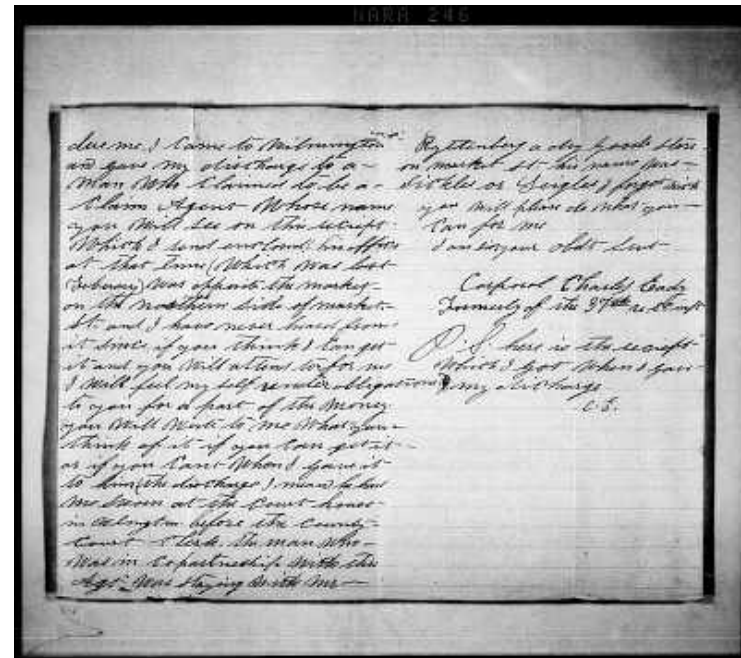 NARA 246
due me I Came to Wilmington
and gave my discharge to a
man Who Claimed to be a
Claim Agent Whose name
you Will See on this receipt
Which I send enclosed his office
at that time (Which Was last
Was opposite the market
on the northern side of market
St. and I have never heard from
it since if you think I Can get
it and you Will attend to for me
I Will feel my self render obligations
to you for a part of the money
you Will Write to me What you
think of it if you Can get it
or if you Cant When I gave it
to him (the discharge I mean) he had
me Sworn at the Court house
in before the County
Court Clerk the man Who
Was in Copartnership With this
Agt. Was staying With Mr
a dry goods store
on market St his name Was
Sickles or I forget Which
you Will please do What you
Can for me
I am your obdt Servt
Corporal Charles Eady
Formerly of the 37th
P. S. here is the receipt
Which I got When I gave
my discharge
C. E.